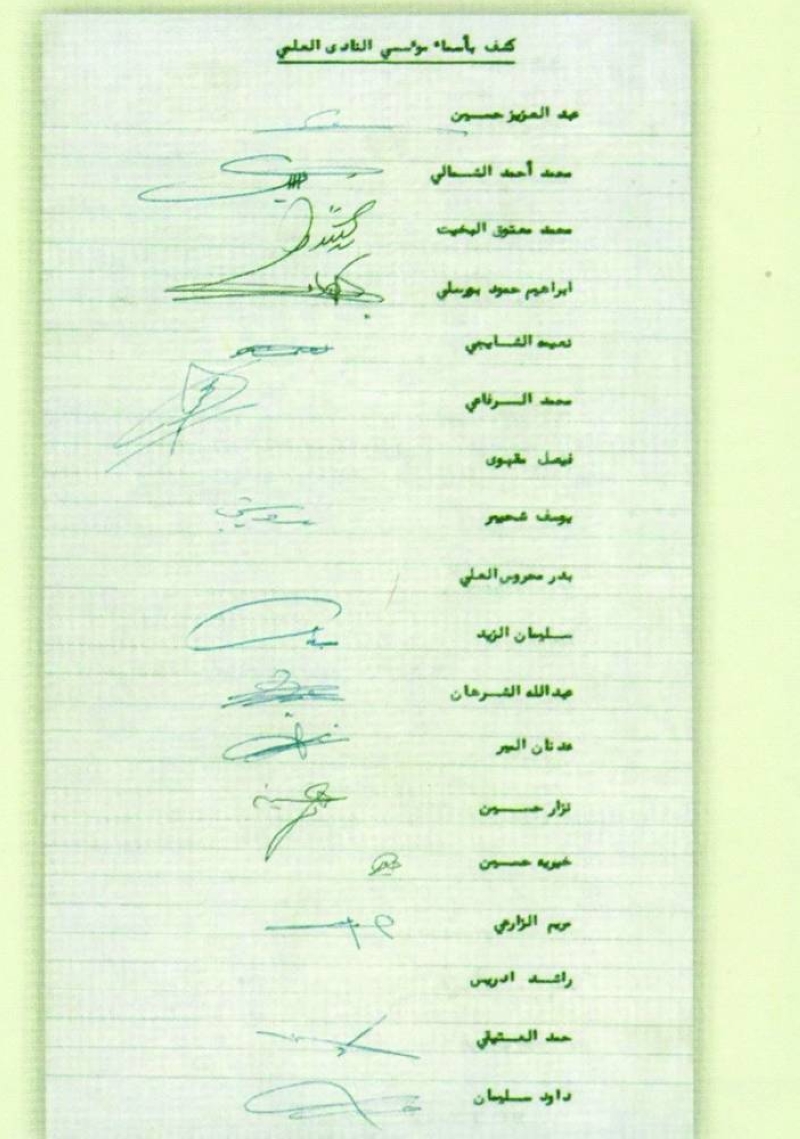 كشف بأسماء مؤسسي النادى العلمي
عبد العزيز حسين
محمد أحمد الشمالي
محمد معتوق البخيت
ابراهيم حمود بورسلي
نعيمه الشايجي
محمد الرفاعي
فيصل مقهوى
يوسف شحيبر
بدر محروس العلي
سليمان الزيد
عبدالله الشرهان
عدنان المير
نزار حسين
خيريه حسين
مريم الزارعي
راشد ادريس
حمد
داود سليمان